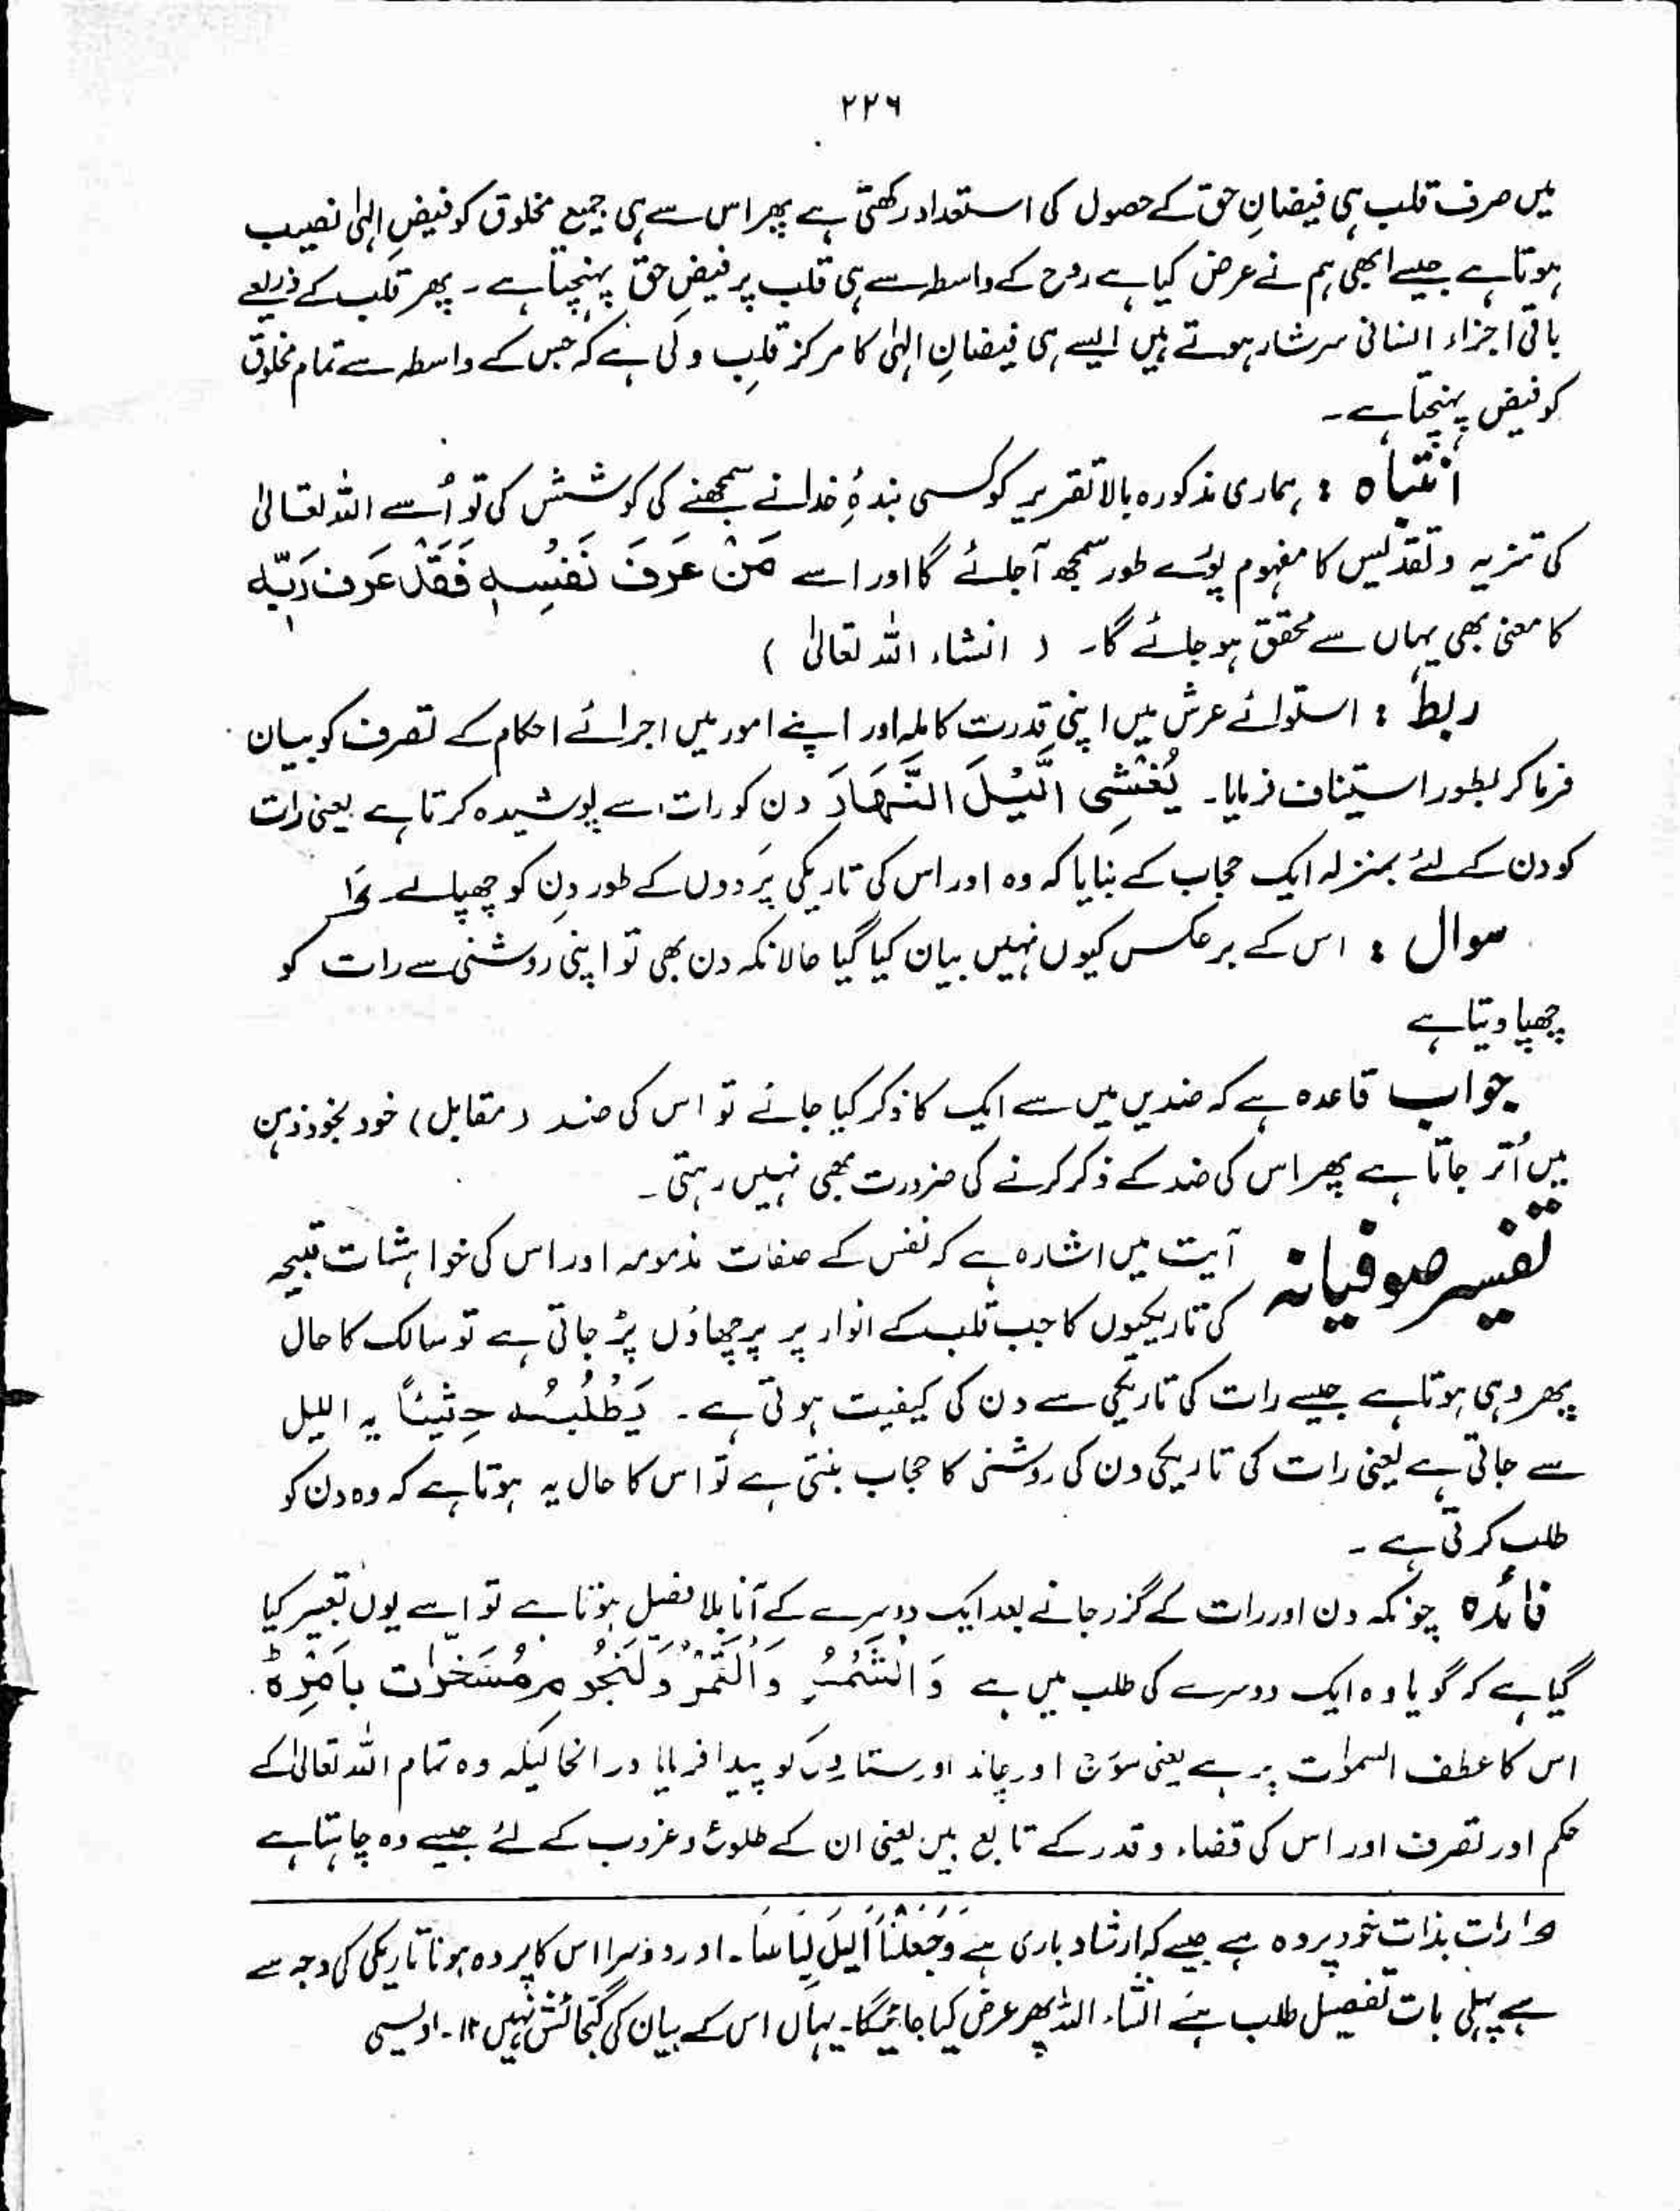 ۲۲۶
میں صرف قلب ہی فیضانِ حق کے حصول کی استعداد رکھتی ہے پھر اس سے ہی جمیع مخلوق کو فیضِ الہٰی نصیب
ہوتا ہے جیسے ابھی ہم نے عرض کیا ہے روح کے واسطہ سے ہی قلب پر فیضِ حق پہنچتا ہے ۔ پھر قلب کے ذریعے
باقی اجزاء انسانی سرشار ہوتے ہیں ایسے ہی فیضانِ الہٰی کا مرکز قلبِ ولی ہے کہ جس کے واسطہ سے تمام مخلوق
کو فیض پہنچتا ہے ۔
انتباہ : ہماری مذکورہ بالا تقریر کو کسی بندۂِ خدا نے سمجھنے کی کوشش کی تو اُسے اللہ تعالیٰ
کی تنزیہ و تقدیس کا مفہوم پوُرے طور سمجھ آجائے گا اور اسے مَنْ عَرَفَ نَفْسِہٖ فَقَدْ عَرَفَ رَبّہٖ
کا معنی بھی یہاں سے محقق ہو جائے گا۔ ( انشاء اللہ تعالیٰ )
ربط : استوائے عرش میں اپنی قدرت کاملہ اور اپنے امور میں اجرائے احکام کے تصرف کو بیان
فرما کر بطور استیناف فرمایا۔ یُغْشِی الَّیْلَ النَّھَارَ دن کو رات سے پوشیدہ کرتا ہے یعنی رات
کو دن کے لئے بمنزلہ ایک حجاب کے بنایا کہ وہ اور اس کی تاریکی پَردوں کے طور دن کو چھپالے ۔ ؎۱
سوال : اس کے برعکس کیوں نہیں بیان کیا گیا حالانکہ دن بھی تو اپنی روشنی سے رات کو
چھپا دیتا ہے
جواب قاعدہ ہے کہ ضدین میں سے ایک کا ذکر کیا جانے تو اس کی ضد (مقابل) خود بخود ذہن
میں اُتر جاتا ہے پھر اس کی ضد کے ذکر کرنے کی ضرورت بھی نہیں رہتی ۔
تفسیر صوفیانہ آیت میں اشارہ ہے کہ نفس کے صفات مذمومہ اور اس کی خواہشات قبیحہ
کی تاریکیوں کا جب قلب کے انوار پر پرچھاؤں پڑ جاتی ہے تو سالک کا حال
پھر وہی ہوتا ہے جیسے رات کی تاریکی سے دن کی کیفیت ہوتی ہے ۔ یَطْلُبُہٗ حِثِیْثًا یہ اللیل
سے جاتی ہے یعنی رات کی تاریکی دن کی روشنی کا حجاب بنتی ہے تو اس کا حال یہ ہوتا ہے کہ وہ دن کو
طلب کرتی ہے ۔
فائدہ چونکہ دن اور رات کے گزر جانے بعد ایک دوسرے کے آنا بلا فصیل ہوتا ہے تو اسے یوں تعبیر کیا
گیا ہے کہ گویا وہ ایک دوسرے کی طلب میں ہے وَالشَّمْسَ وَالْقَمَرَ وَلنَجُوْمَ مُسَخَّرٰات بِاَمْرِہٖ ؕ
اس کا عطف السمٰوٰت پر ہے یعنی سوَرج اور چاند اور ستاروں کو پیدا فرمایا در انحالیکہ وہ تمام اللہ تعالیٰ کے
حکم اور تصرف اور اس کی قضاء و قدر کے تابع ہیں یعنی ان کے طلوع و غروب کے لئے جیسے وہ چاہتا ہے
؎۱ رات بذات خود پردہ ہے جیسے کہ ارشاد باری ہے وَجَعَلْنَا الَّیلَ لِبَاسًا ۔ اور دوسرا اس کا پردہ ہونا تاریکی کی وجہ سے
ہے پہلی بات تفصیل طلب ہے انشاء اللہ پھر عرض کیا جائیگا۔ یہاں اس کے بیان کی گنجائش نہیں ۱۲۔ اویسی